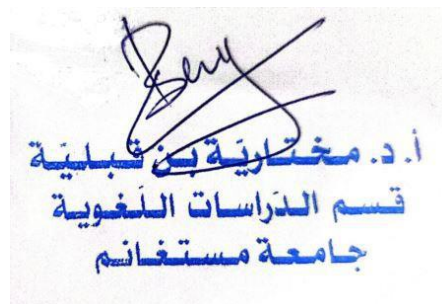 أ. د. مختاريَة بن قبليَة
قسم الدَراسات اللَغوية
جامعة مستغانم